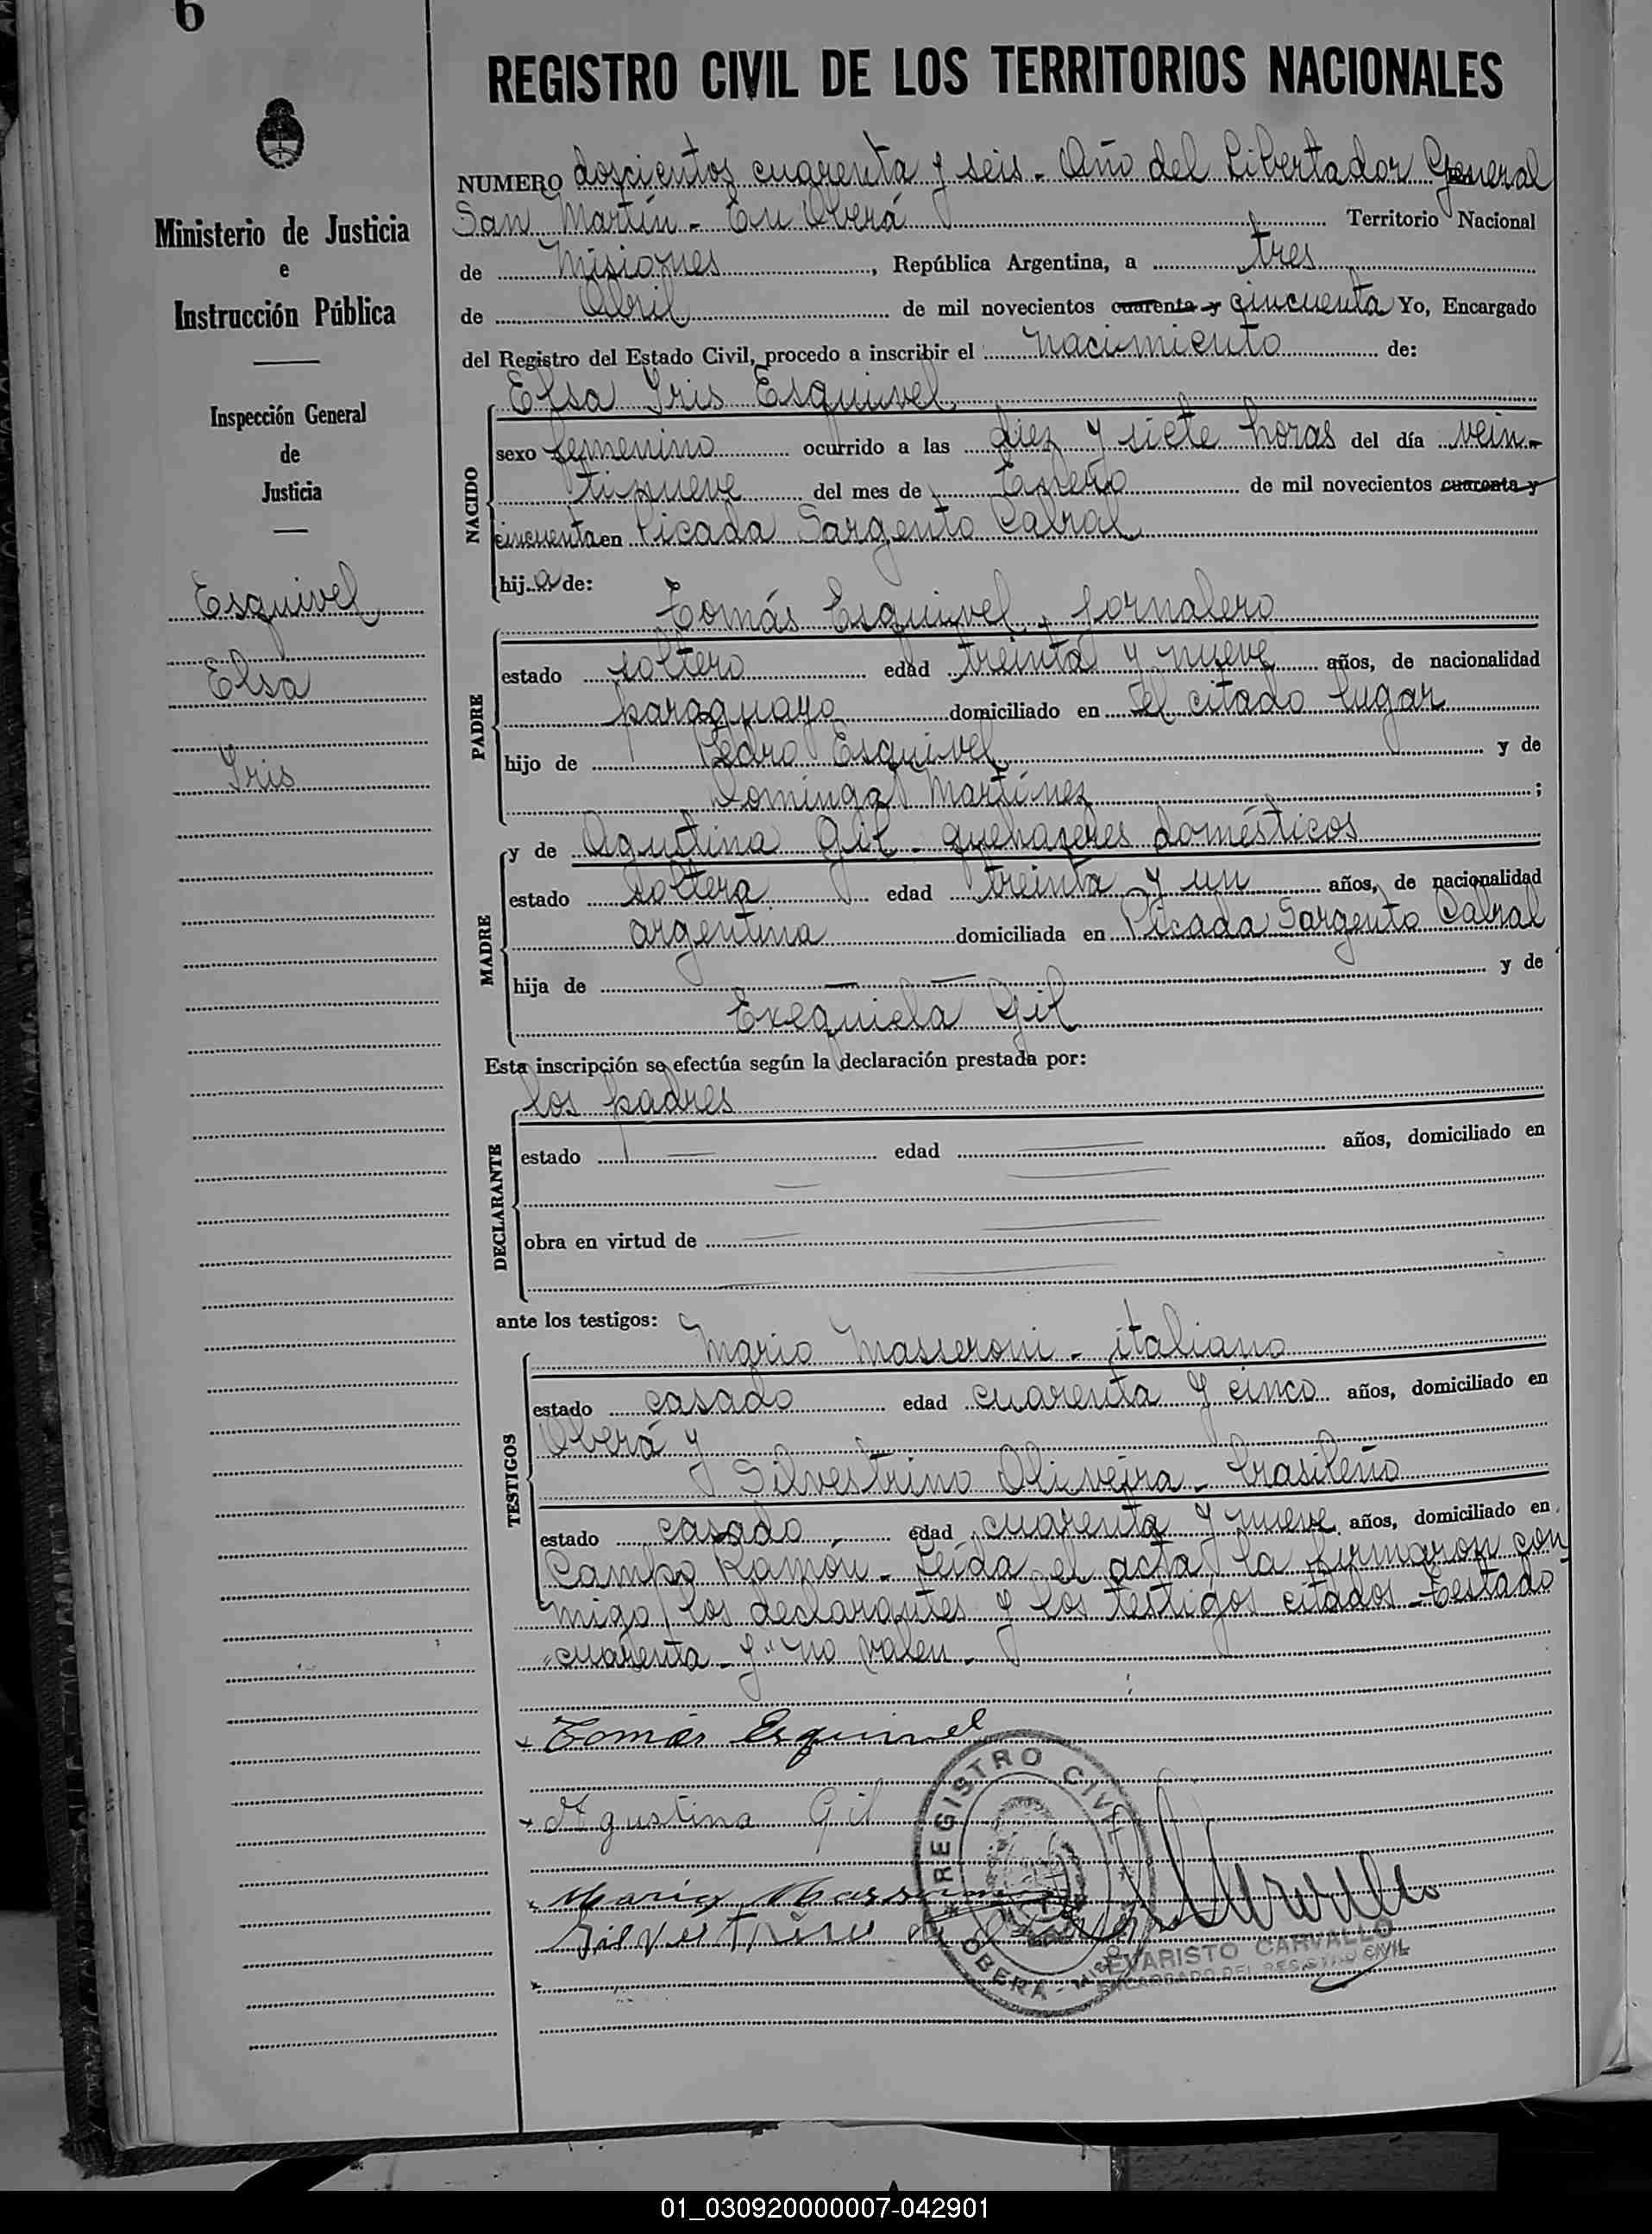 6
REGISTRO CIVIL DE LOS TERRITORIOS NACIONALES
Ministerio de Justicia
e
Instrucción Pública
Inspección General
de
Justicia
Esquivel
Elsa
Iris
NUMERO doscientos cuarenta y seis - Año del Libertador General
San Martín - En Oberá Territorio Nacional
de Misiones, República Argentina, a tres
de Abril de mil novecientos cuarenta y cincuenta Yo, Encargado
del Registro del Estado Civil, procedo a inscribir el nacimiento de:
Elsa Iris Esquivel
NACIDO
sexo femenino ocurrido a las diez y siete horas del día vein-
tinueve del mes de Enero de mil novecientos cuarenta y
cincuenta en Picada Sargento Cabral
hij a de:
Tomás Esquivel, jornalero
PADRE
estado soltero edad treinta y nueve años, de nacionalidad
paraguayo domiciliado en el citado lugar
hijo de Pedro Esquivel y de
Dominga Martínez ;
y de Agustina Gil - quehaceres domésticos
MADRE
estado soltera edad treinta y un años, de nacionalidad
argentina domiciliada en Picada Sargento Cabral
hija de — — y de
Exequiela Gil
Esta inscripción se efectúa según la declaración prestada por:
los padres
DECLARANTE
estado — edad — años, domiciliado en
obra en virtud de —
ante los testigos:
Mario Masseroni - italiano
TESTIGOS
estado casado edad cuarenta y cinco años, domiciliado en
Oberá y
Silvestrino Oliveira - brasileño
estado casado - edad cuarenta y nueve años, domiciliado en
Campo Ramón - Leída el acta, la firmaron con
migo los declarantes y los testigos citados - Testado
"cuarenta - y" no valen -
Tomás Esquivel
Agustina Gil
REGISTRO CIVIL
OBERA - MIS
EVARISTO CARVALLO
ENCARGADO DEL REGISTRO CIVIL
01_030920000007-042901